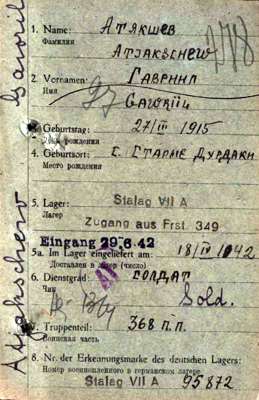 Atjakschew Gawriil
278
1. Name: Атякшев
Фамилия Atjakschew
2. Vornamen: Гавриил
Имя Gawriil
3. Geburtstag: 27/III 1915
рождения
4. Geburtsort: с. Старые Дурдаки
Место рождения
5. Lager: Stalag VII A
Лагерь Zugang aus Frst. 349
Eingang 29.6.42
5a. Im Lager eingeliefert am: 18/IV 1942
Доставлен в лагерь (число)
6. Dienstgrad: солдат
Чин Sold.
7. Truppenteil: 368 п.п.
Воинская часть
8. Nr. der Erkennungsmarke des deutschen Lagers:
Номер военнопленного в германском лагере
Stalag VII A 95872